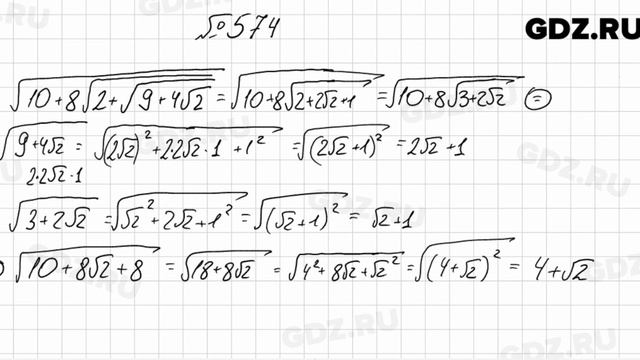 №574
GDZ.RU
√(10+8√(2+√(9+4√2))) = √(10+8√(2+2√2+1)) = √(10+8√(3+2√2)) =
√(9+4√2) = √((2√2)²+2·2√2·1+1²) = √((2√2+1)²) = 2√2+1
2·2√2·1
√(3+2√2) = √(√2²+2√2+1²) = √((√2+1)²) = √2+1
√(10+8√2+8) = √(18+8√2) = √(4²+8√2+√2²) = √((4+√2)²) = 4+√2